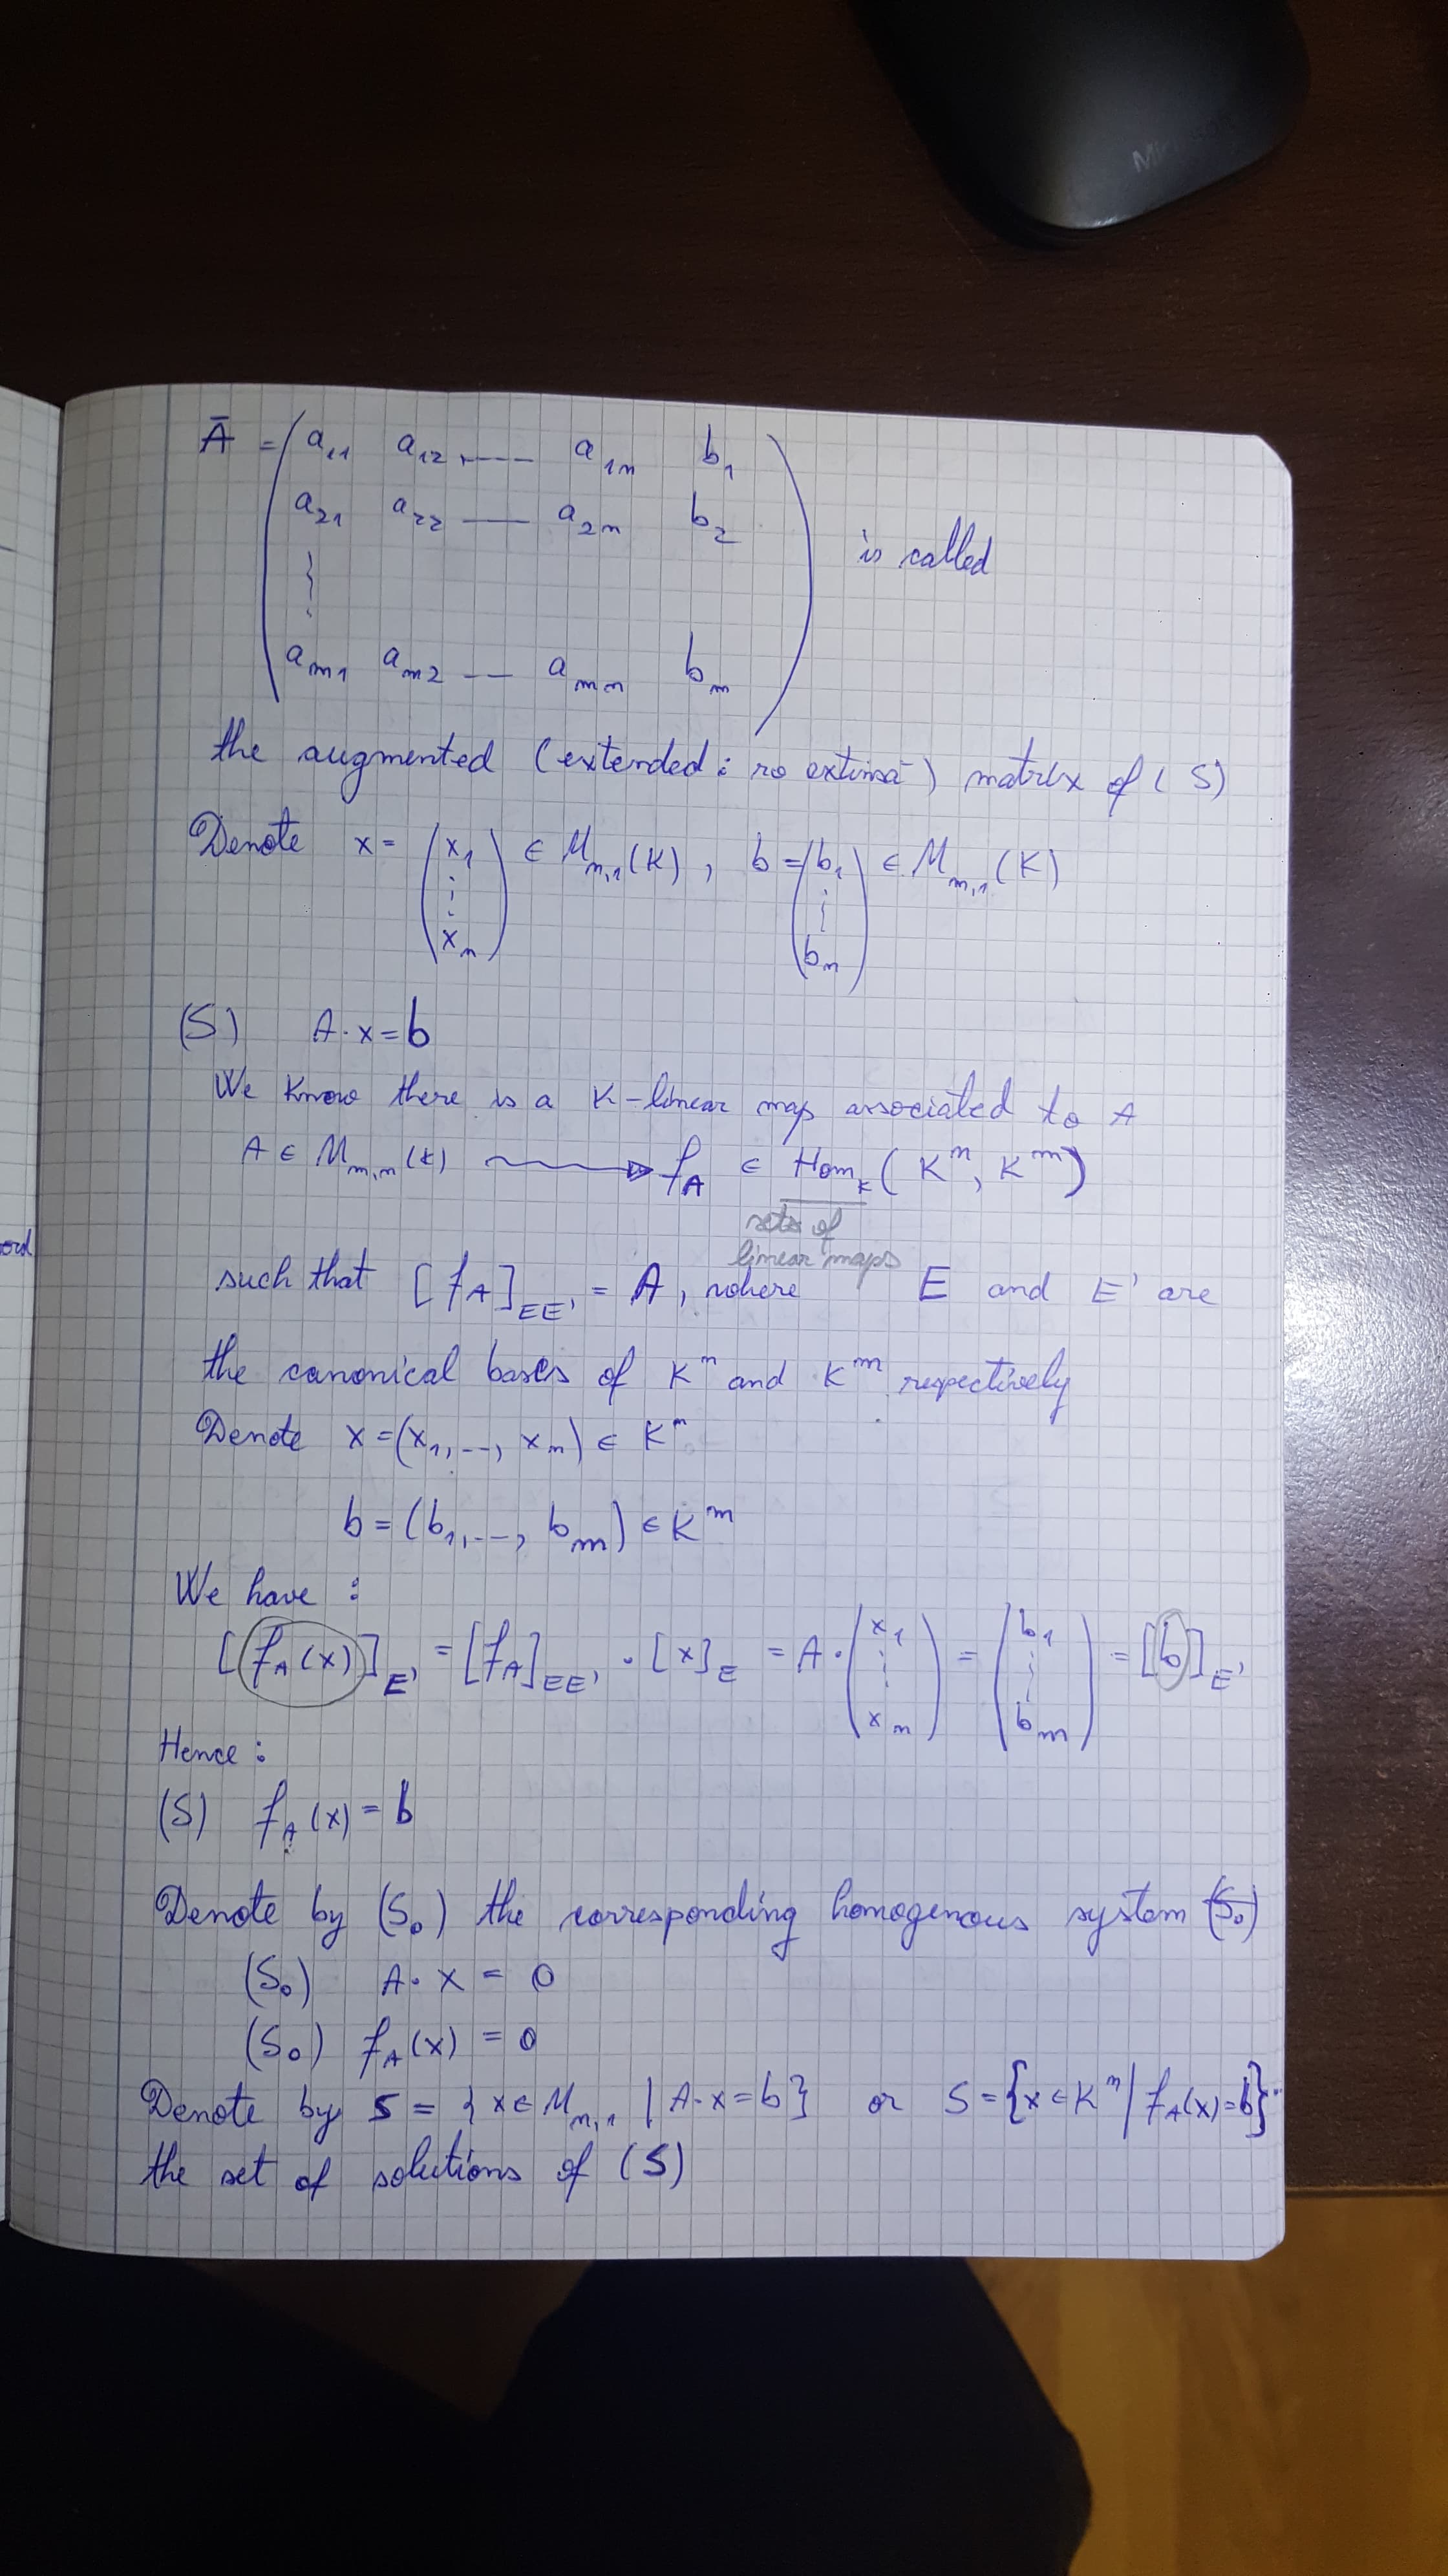 Mic
Ā = ( a₁₁ a₁₂ , ---- a₁ₙ b₁
a₂₁ a₂₂ ---- a₂ₙ b₂
⋮ is called
aₘ₁ aₘ₂ -- -- aₘₙ bₘ )
the augmented (extended : ro extinsă) matrix of (S)
Denote x = (x₁ ⋮ xₙ) ∈ Mₙ,₁(K) , b = (b₁ ⋮ bₘ) ∈ Mₘ,₁(K)
(S) A·x = b
We know there is a K-linear map associated to A
A ∈ Mₘ,ₙ(K) ⟿ f_A ∈ Hom_K(Kⁿ, Kᵐ)
sets of
linear maps
such that [f_A]_EE' = A, where E and E' are
the canonical bases of Kⁿ and Kᵐ respectively
Denote x = (x₁, --, xₙ) ∈ Kⁿ
b = (b₁, --, bₘ) ∈ Kᵐ
We have :
[f_A(x)]_E' = [f_A]_EE' · [x]_E = A · (x₁ ⋮ xₙ) = (b₁ ⋮ bₘ) = [b]_E'
Hence :
(S) f_A(x) = b
Denote by (S₀) the corresponding homogenous system (S₀)
(S₀) A·x = 0
(S₀) f_A(x) = 0
Denote by S = {x ∈ Mₙ,₁ | A·x = b} or S = {x ∈ Kⁿ | f_A(x) = b}
the set of solutions of (S)